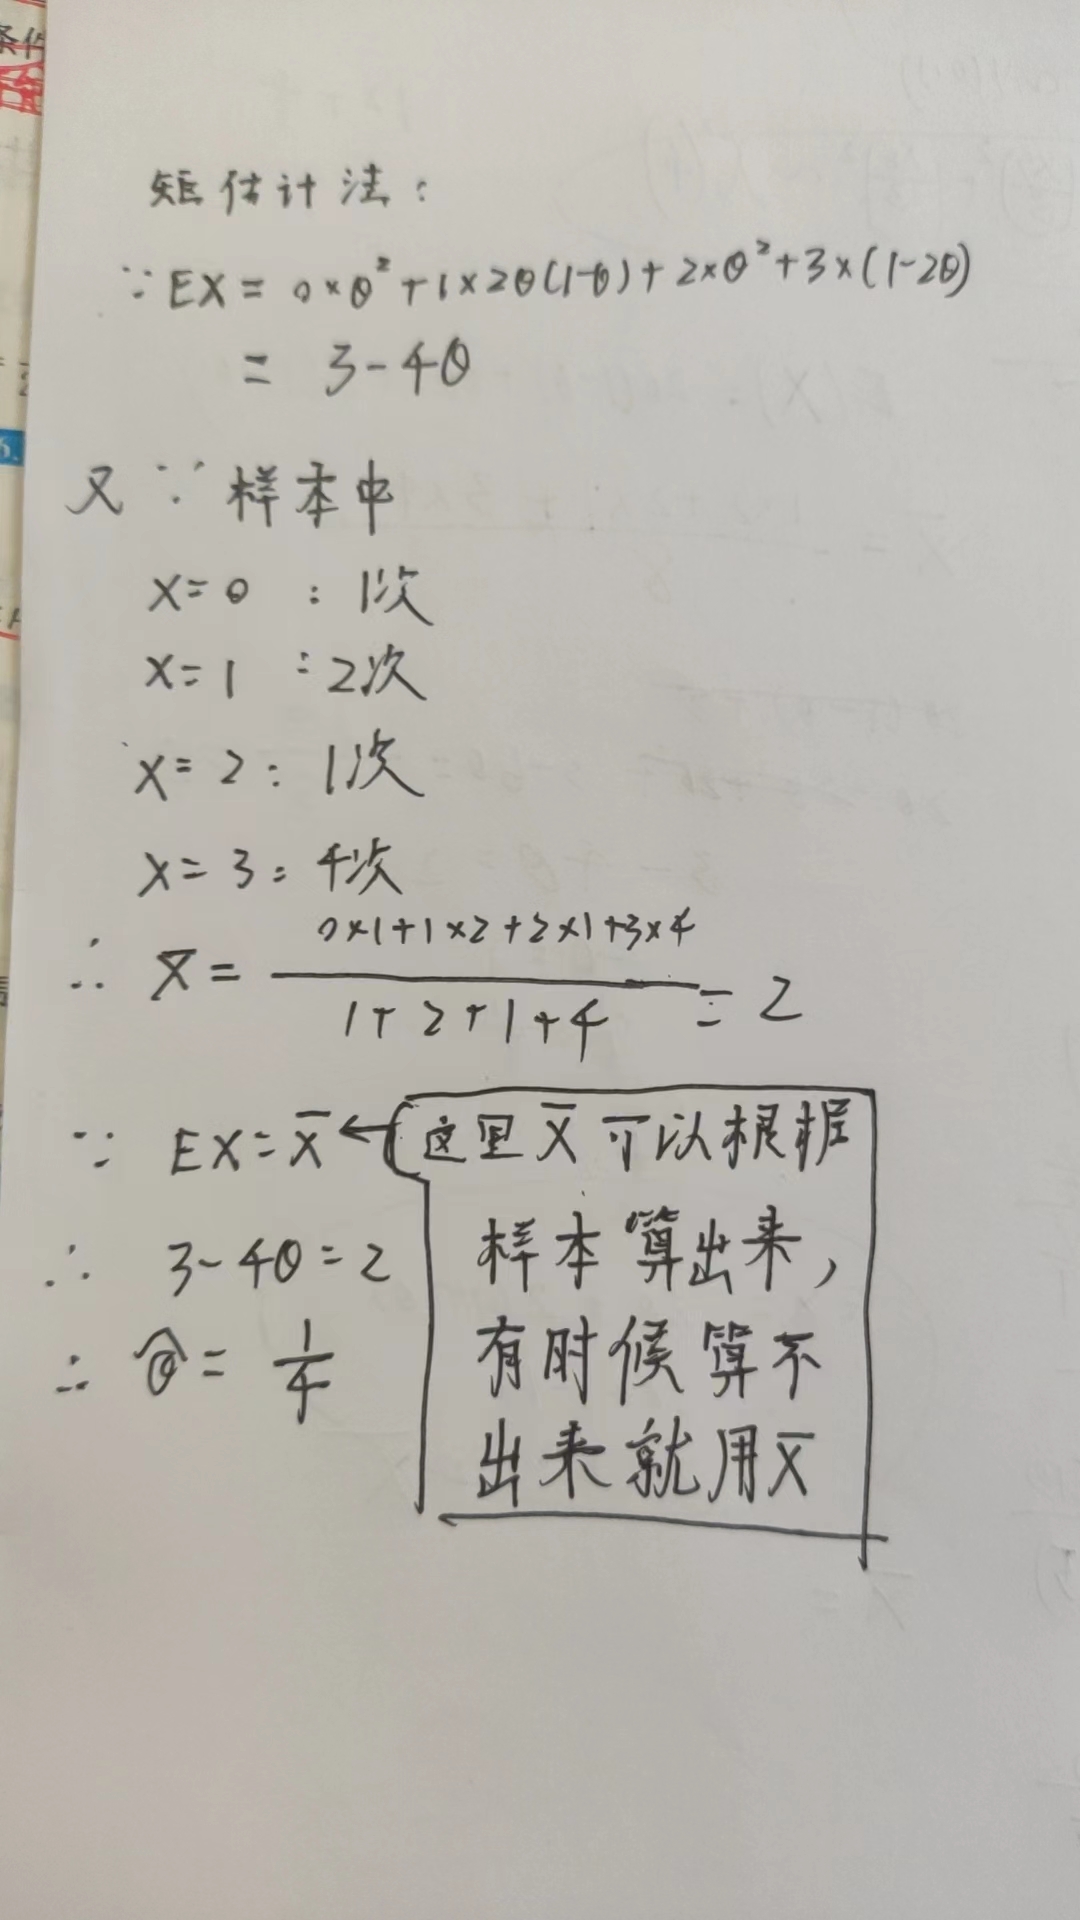 矩估计法：
∵EX = 0×θ²+1×2θ(1-θ)+2×θ²+3×(1-2θ)
= 3-4θ
又∵样本中
X=0：1次
X=1：2次
X=2：1次
X=3：4次
∴ X̄ = (0×1+1×2+2×1+3×4)/(1+2+1+4) = 2
∵ EX=X̄ ← 这里X̄可以根据
样本算出来，
有时候算不
出来就用X̄
∴ 3-4θ=2
∴ θ̂ = 1/4